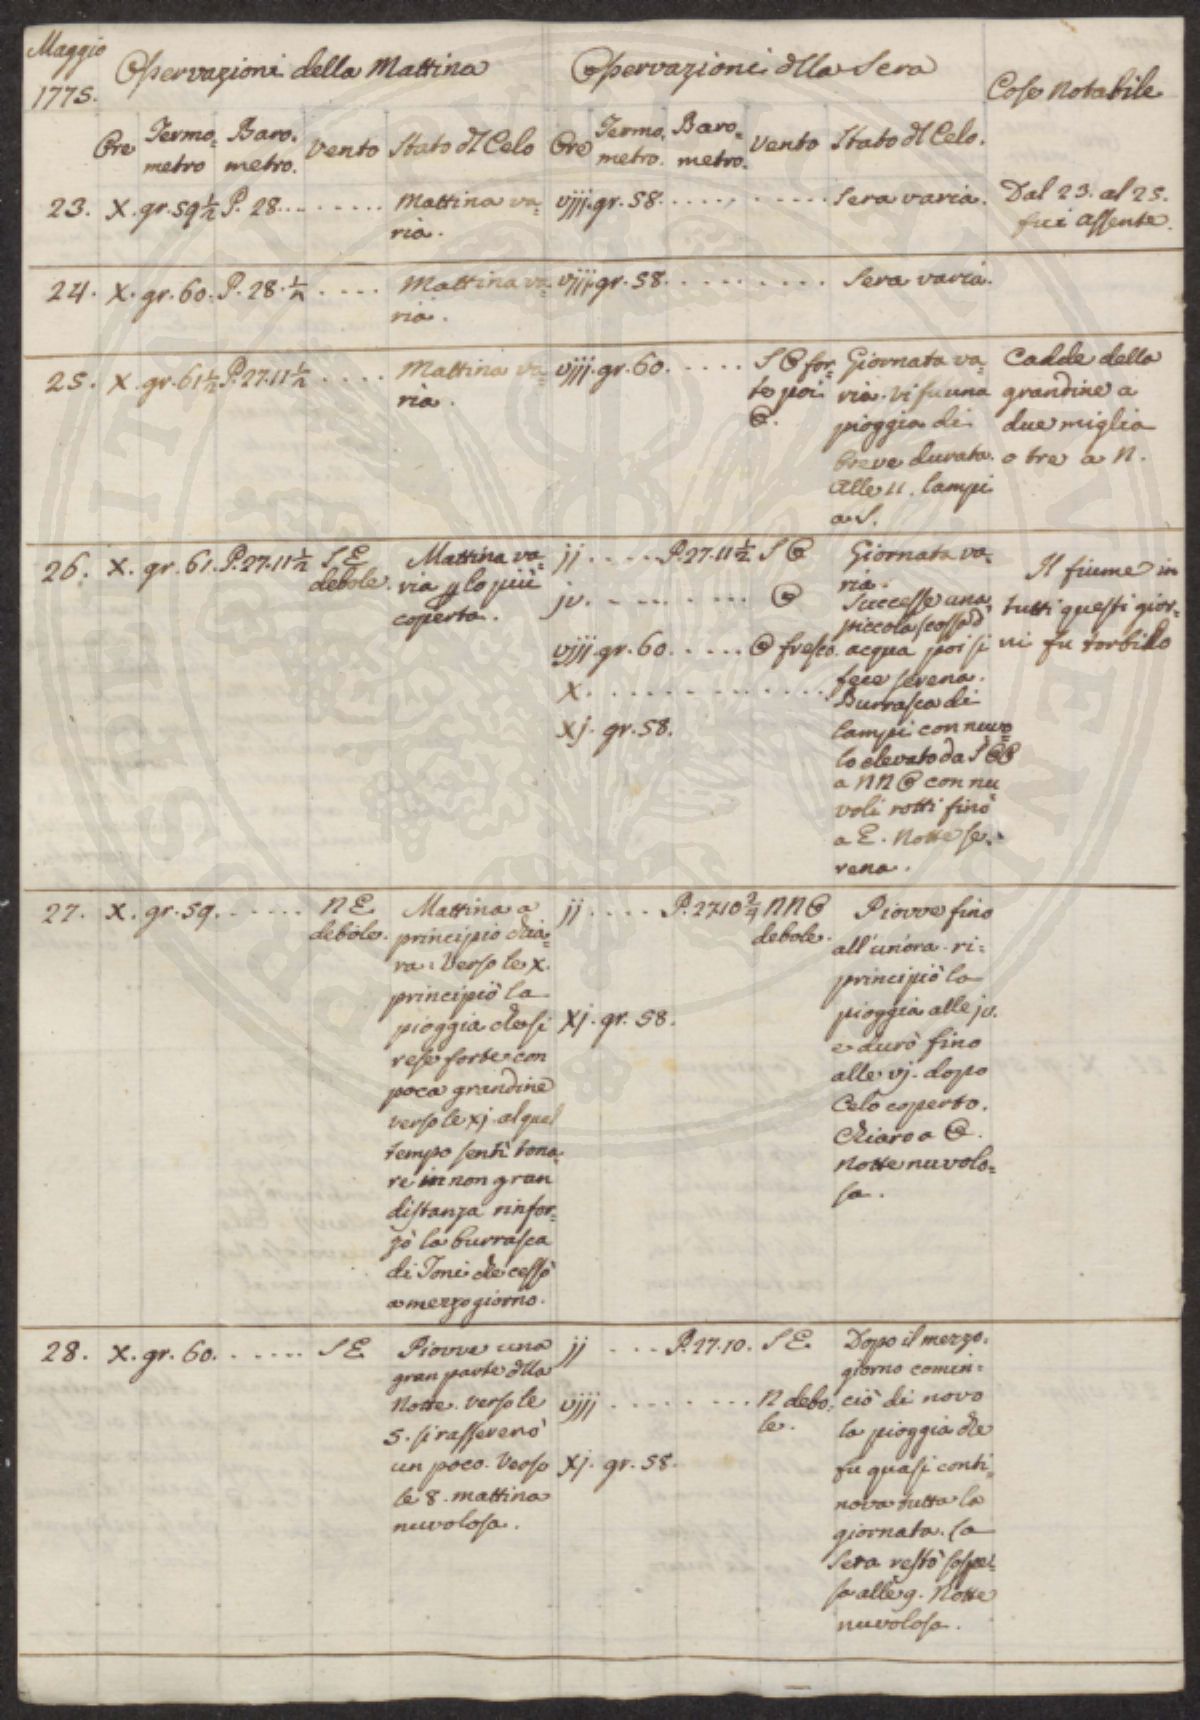 Maggio
1775.
Osservazioni della Mattina
Osservazioni dlla Sera
Cose Notabile
Ore
Termo=
metro
Baro=
metro.
Vento
Stato dl Celo
Ore
Termo=
metro.
Baro=
metro.
Vento
Stato dl Celo.
23. X. gr. 59 1/2 P. 28. . . . . . . . Mattina va=
ria.
viij. gr. 58. . . . . . . . . . Sera varia.
Dal 23. al 25.
fui assente.
24. X. gr. 60. P. 28. 1/2 . . . . Mattina va=
ria.
viij. gr. 58. . . . . . . . . . Sera varia.
25. X. gr. 61 1/2 P. 27. 11 1/2 . . . . Mattina va=
ria.
viij. gr. 60. . . . . .
S O for=
te poi
O.
Giornata va=
ria. vi fu una
pioggia di
breve durata.
Alle 11. lampi
a S.
Cadde della
grandine a
due miglia
o tre a N.
26. X. gr. 61. P. 27. 11 1/2 S E
debole.
Mattina va=
ria p lo più
coperta.
ij . . . . . P. 27. 11 1/2 S O
jv. . . . . . . . . . O
viij. gr. 60. . . . . . O fresco.
X. . . . . . . . . . . . . .
Xj. gr. 58.
Giornata va=
ria.
Successe una
piccola scossa d'
acqua poi si
fece serena.
Burrasca di
lampi con nuvo=
lo elevato da S O O
a N N O con nu
voli rotti fino
a E. Notte se=
rena.
Il fiume in
tutti questi gior=
ni fu torbido
27. X. gr. 59. . . . . . . N E
debole.
Mattina a
principio chia=
ra. Verso le X.
principiò la
pioggia che si
rese forte con
poca grandine
verso le Xj. al qual
tempo senti tona=
re in non gran
distanza rinfor=
zò la burrasca
di Toni che cessò
a mezzo giorno.
ij . . . . P. 27.10 3/4 N N O
debole.
Xj. gr. 58.
Piovve fino
all' un'ora. ri=
principiò la
pioggia alle jv.
e durò fino
alle vj. dopo
Celo coperto.
Chiaro a O.
Notte nuvolo=
sa.
28. X. gr. 60. . . . . . . S E
Piovve una
gran parte dlla
Notte. verso le
5. si rasserenò
un poco. Verso
le 8. mattina
nuvolosa.
ij . . . . P. 27. 10. S E.
viij . . . . . . . . . N debo=
le.
Xj. gr. 58.
Dopo il mezzo=
giorno comin=
ciò di novo
la pioggia che
fu quasi conti=
nova tutta la
giornata. La
Sera restò sospe=
sa alle 9. Notte
nuvolosa.